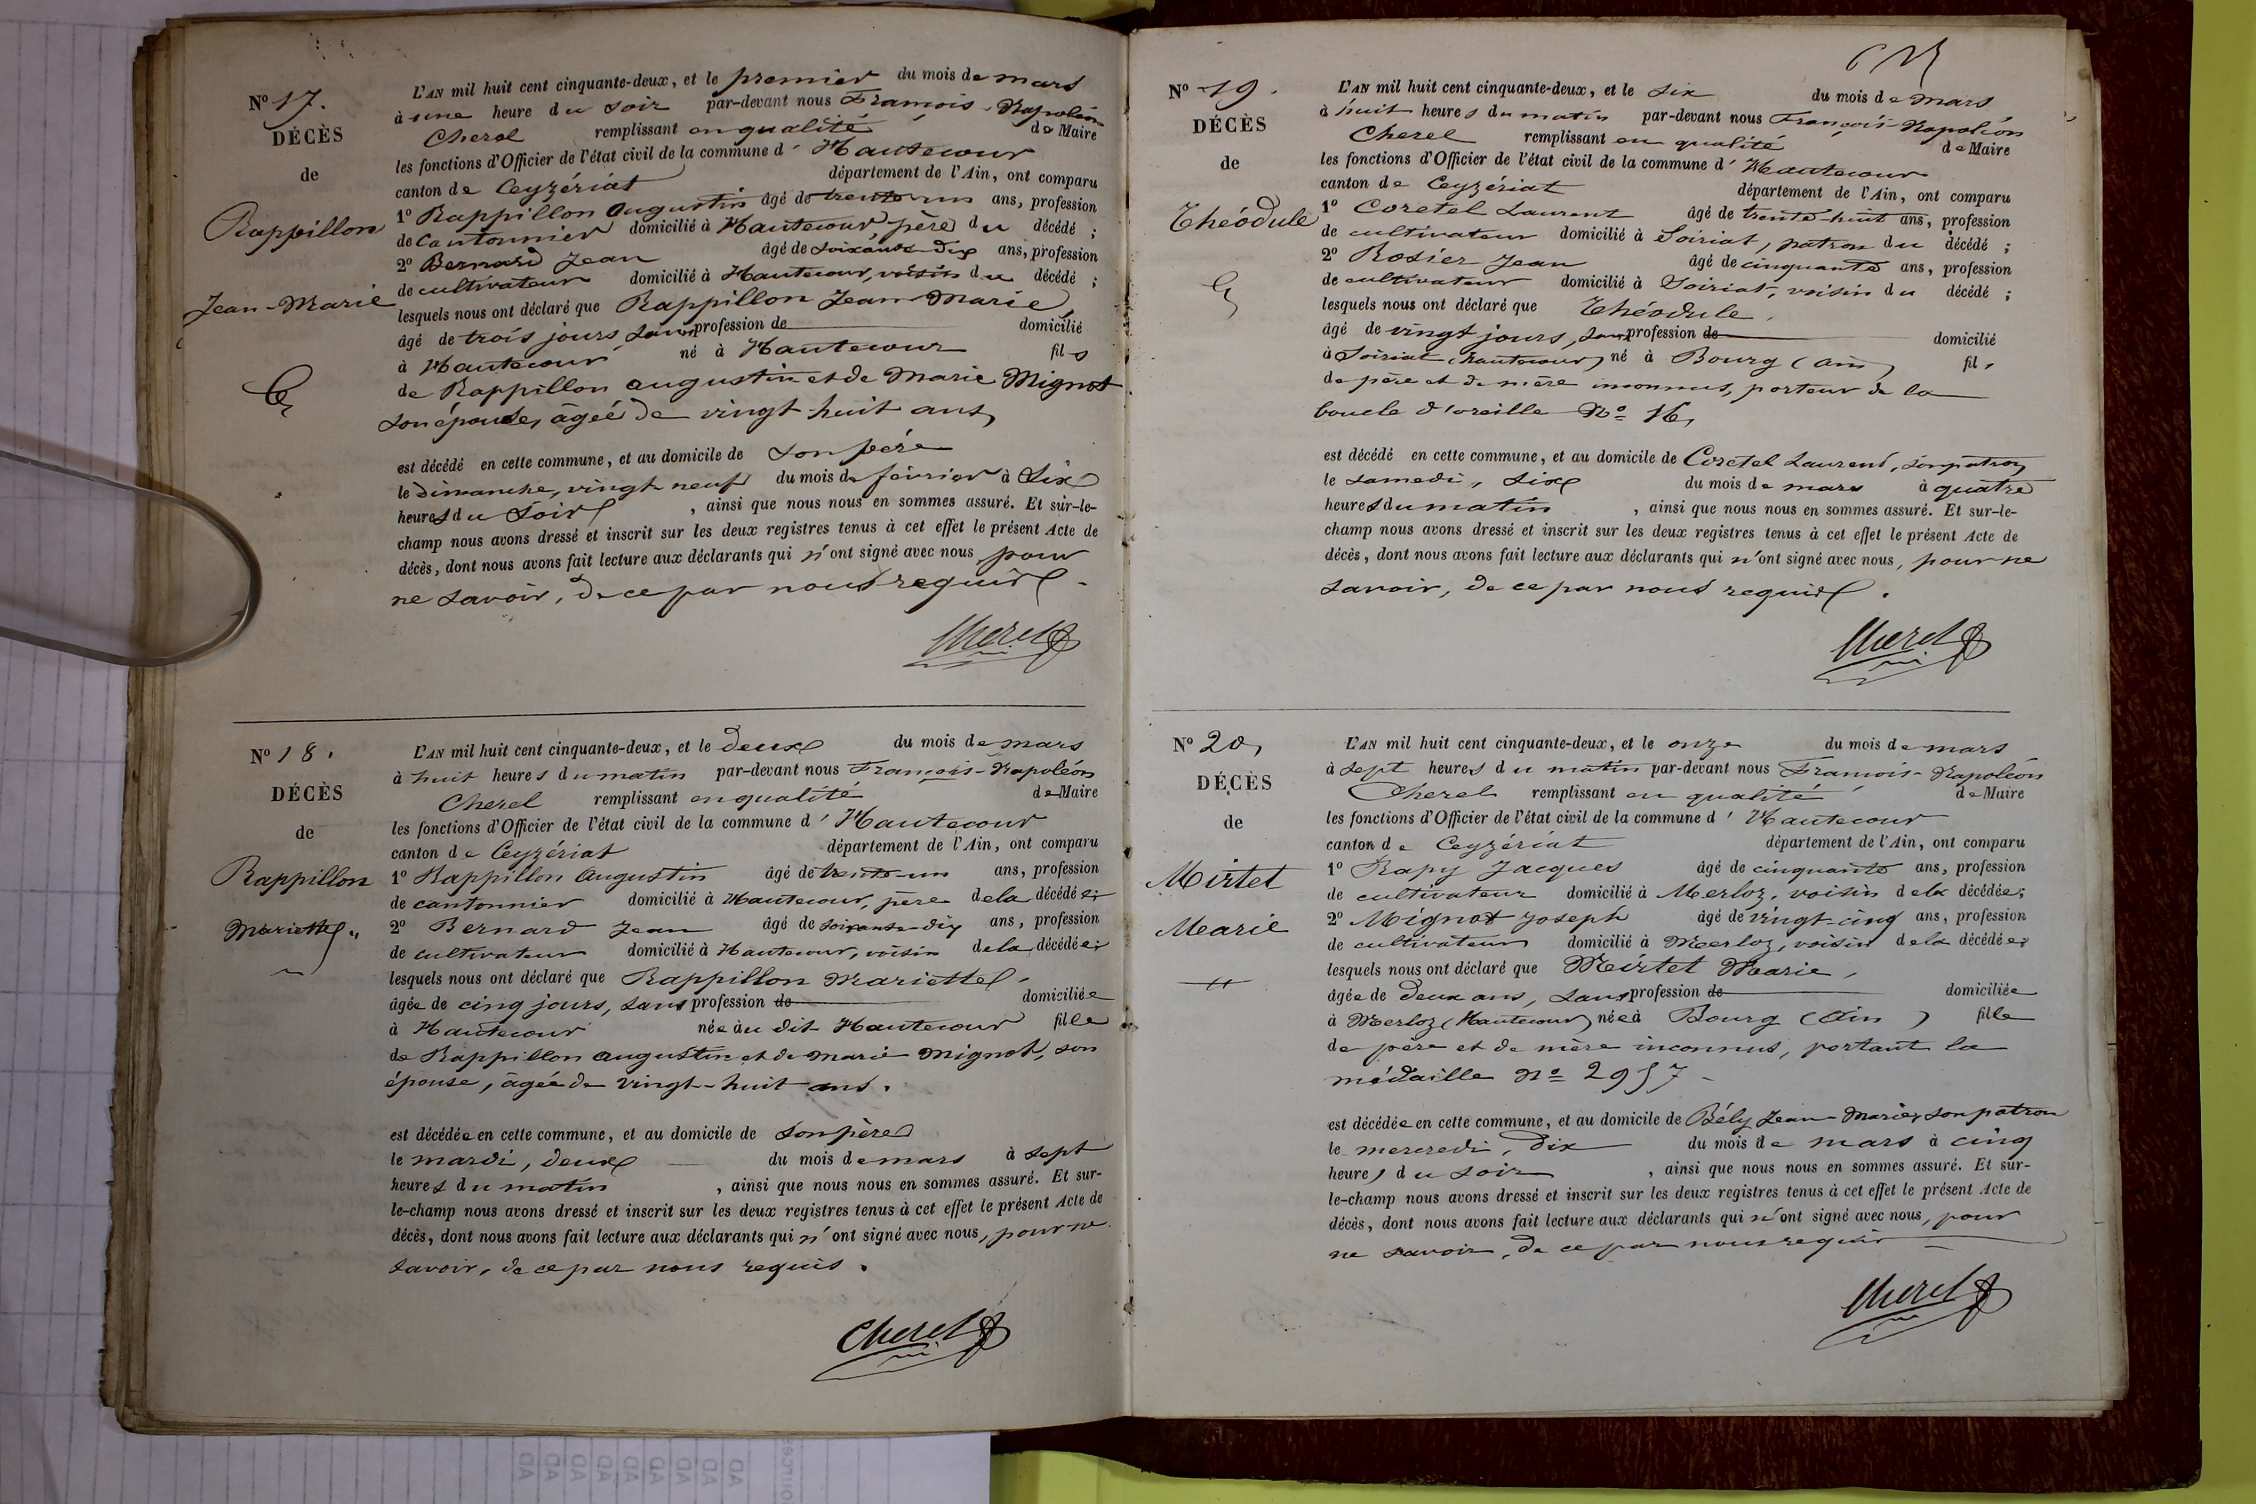 N° 17.
DÉCÈS
de
Rappillon
Jean-Marie
L'AN mil huit cent cinquante-deux, et le premier du mois de mars
à une heure du soir par-devant nous François-Napoléon
Cherel remplissant en qualité de Maire
les fonctions d'Officier de l'état civil de la commune d' Hautecour
canton de Ceyzériat département de l'Ain, ont comparu
1° Rappillon Augustin âgé de trente-un ans, profession
de cantonnier domicilié à Hautecour, père du décédé ;
2° Bernard Jean âgé de soixante-dix ans, profession
de cultivateur domicilié à Hautecour, voisin du décédé ;
lesquels nous ont déclaré que Rappillon Jean-Marie,
âgé de trois jours, sans profession de domicilié
à Hautecour né à Hautecour fils
de Rappillon Augustin et de Marie Mignot
son épouse, âgée de vingt-huit ans,
est décédé en cette commune, et au domicile de son père
le dimanche, vingt-neuf du mois de février à six
heures du soir, ainsi que nous nous en sommes assuré. Et sur-le-
champ nous avons dressé et inscrit sur les deux registres tenus à cet effet le présent Acte de
décès, dont nous avons fait lecture aux déclarants qui n'ont signé avec nous, pour
ne savoir, de ce par nous requis.
Cherel
N° 18.
DÉCÈS
de
Rappillon
Mariette
L'AN mil huit cent cinquante-deux, et le deux du mois de mars
à huit heures du matin par-devant nous François-Napoléon
Cherel remplissant en qualité de Maire
les fonctions d'Officier de l'état civil de la commune d' Hautecour
canton de Ceyzériat département de l'Ain, ont comparu
1° Rappillon Augustin âgé de trente-un ans, profession
de cantonnier domicilié à Hautecour, père de la décédée ;
2° Bernard Jean âgé de soixante-dix ans, profession
de cultivateur domicilié à Hautecour, voisin de la décédée ;
lesquels nous ont déclaré que Rappillon Mariette,
âgée de cinq jours, sans profession de domiciliée
à Hautecour née au dit Hautecour fille
de Rappillon Augustin et de Marie Mignot, son
épouse, âgée de vingt-huit ans.
est décédée en cette commune, et au domicile de son père
le mardi, deux du mois de mars à sept
heures du matin, ainsi que nous nous en sommes assuré. Et sur-
le-champ nous avons dressé et inscrit sur les deux registres tenus à cet effet le présent Acte de
décès, dont nous avons fait lecture aux déclarants qui n'ont signé avec nous, pour ne
savoir, de ce par nous requis.
Cherel
N° 19.
DÉCÈS
de
Théodule
L'AN mil huit cent cinquante-deux, et le six du mois de mars
à huit heures du matin par-devant nous François-Napoléon
Cherel remplissant en qualité de Maire
les fonctions d'Officier de l'état civil de la commune d' Hautecour
canton de Ceyzériat département de l'Ain, ont comparu
1° Coretel Laurent âgé de trente-huit ans, profession
de cultivateur domicilié à Soiriat, patron du décédé ;
2° Rosier Jean âgé de cinquante ans, profession
de cultivateur domicilié à Soiriat, voisin du décédé ;
lesquels nous ont déclaré que Théodule,
âgé de vingt jours, sans profession de domicilié
à Soiriat (Hautecour) né à Bourg (Ain) fils
de père et de mère inconnus, porteur de la
boucle d'oreille N° 16,
est décédé en cette commune, et au domicile de Coretel Laurent, son patron
le samedi, six du mois de mars à quatre
heures du matin, ainsi que nous nous en sommes assuré. Et sur-le-
champ nous avons dressé et inscrit sur les deux registres tenus à cet effet le présent Acte de
décès, dont nous avons fait lecture aux déclarants qui n'ont signé avec nous, pour ne
savoir, de ce par nous requis.
Cherel
N° 20,
DÉCÈS
de
Mirtet
Marie
L'AN mil huit cent cinquante-deux, et le onze du mois de mars
à sept heures du matin par-devant nous François-Napoléon
Cherel remplissant en qualité de Maire
les fonctions d'Officier de l'état civil de la commune d' Hautecour
canton de Ceyzériat département de l'Ain, ont comparu
1° Rapy Jacques âgé de cinquante ans, profession
de cultivateur domicilié à Merloz, voisin de la décédée ;
2° Mignot Joseph âgé de vingt-cinq ans, profession
de cultivateur domicilié à Merloz, voisin de la décédée ;
lesquels nous ont déclaré que Mirtet Marie,
âgée de deux ans, sans profession de domiciliée
à Merloz (Hautecour) née à Bourg (Ain) fille
de père et de mère inconnus, portant la
médaille N° 2957
est décédée en cette commune, et au domicile de Bély Jean-Marie, son patron
le mercredi, dix du mois de mars à cinq
heures du soir, ainsi que nous nous en sommes assuré. Et sur-
le-champ nous avons dressé et inscrit sur les deux registres tenus à cet effet le présent Acte de
décès, dont nous avons fait lecture aux déclarants qui n'ont signé avec nous, pour
ne savoir, de ce par nous requis
Cherel